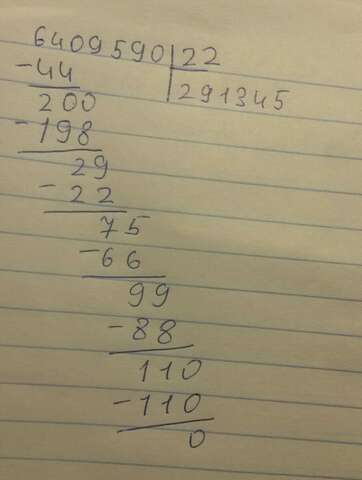 6409590 22
-44 291345
200
-198
29
-22
75
-66
99
-88
110
-110
0